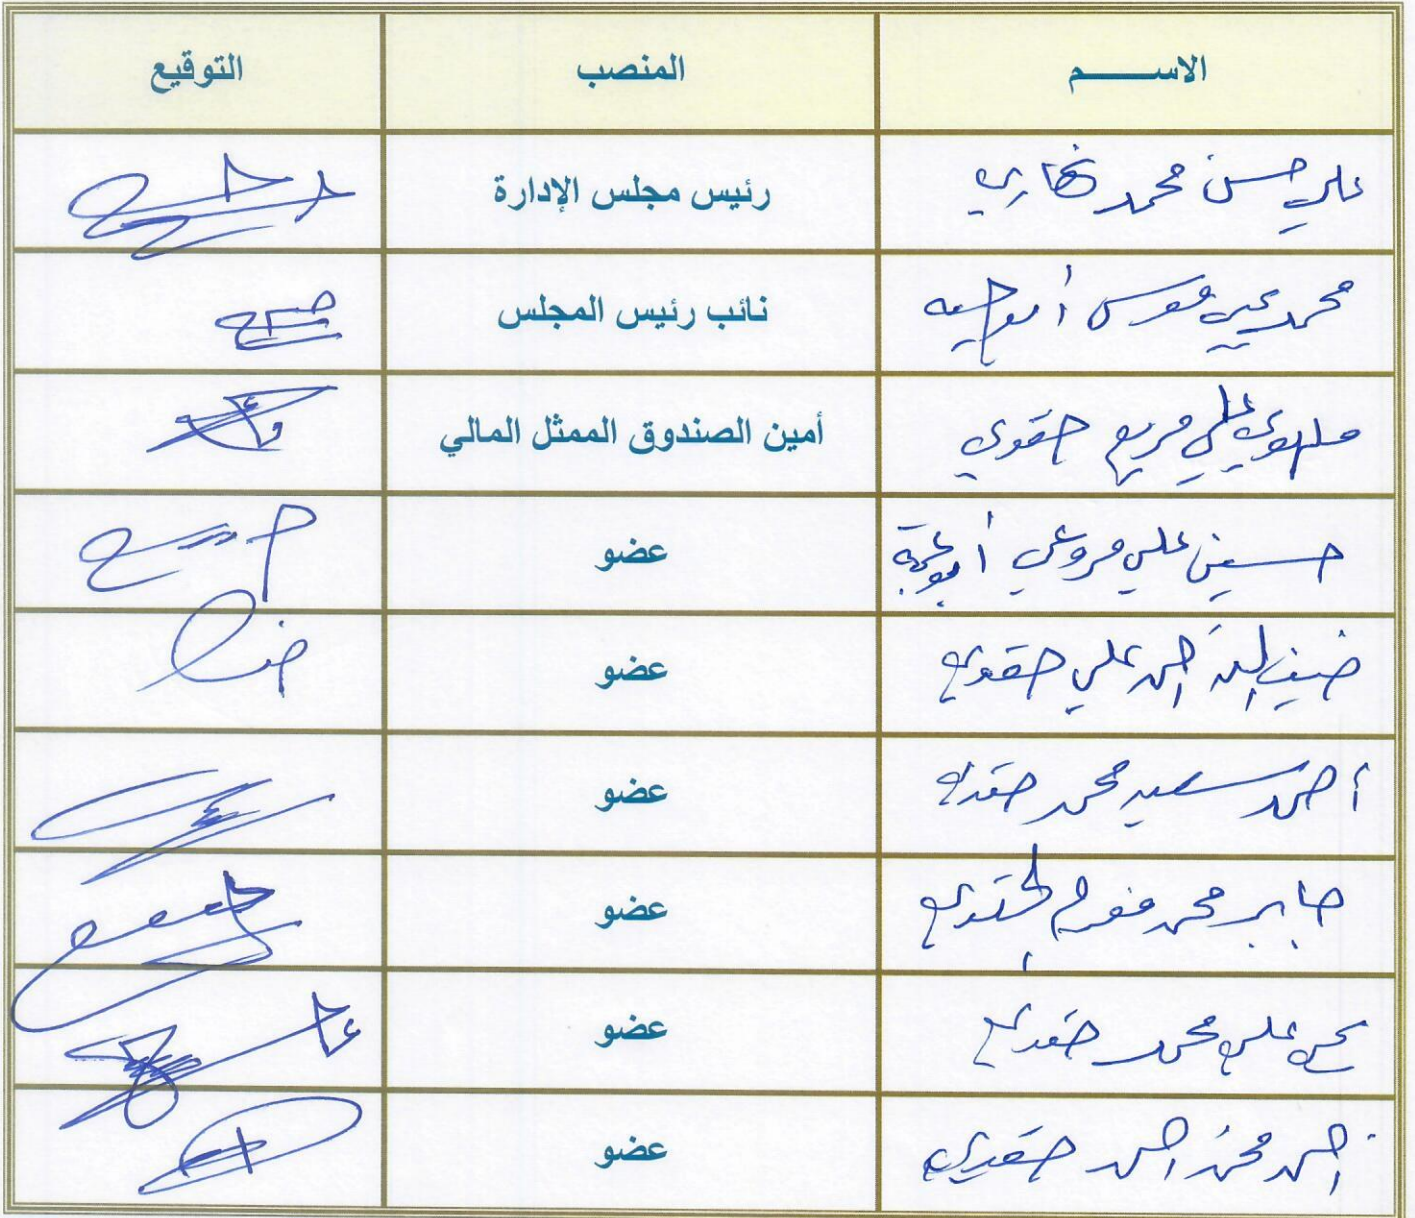 الاسم المنصب التوقيع
علي حسن محمد نهاري رئيس مجلس الإدارة
محمد يحيى موسى نائب رئيس المجلس
علي مريع حقوي أمين الصندوق الممثل المالي
حسين علي مروعي عضو
ضيف الله أحمد علي حقوي عضو
أحمد سعيد محمد حقوي عضو
جابر محمد عضو
يحيى علي محمد حقوي عضو
أحمد محمد أحمد حقوي عضو